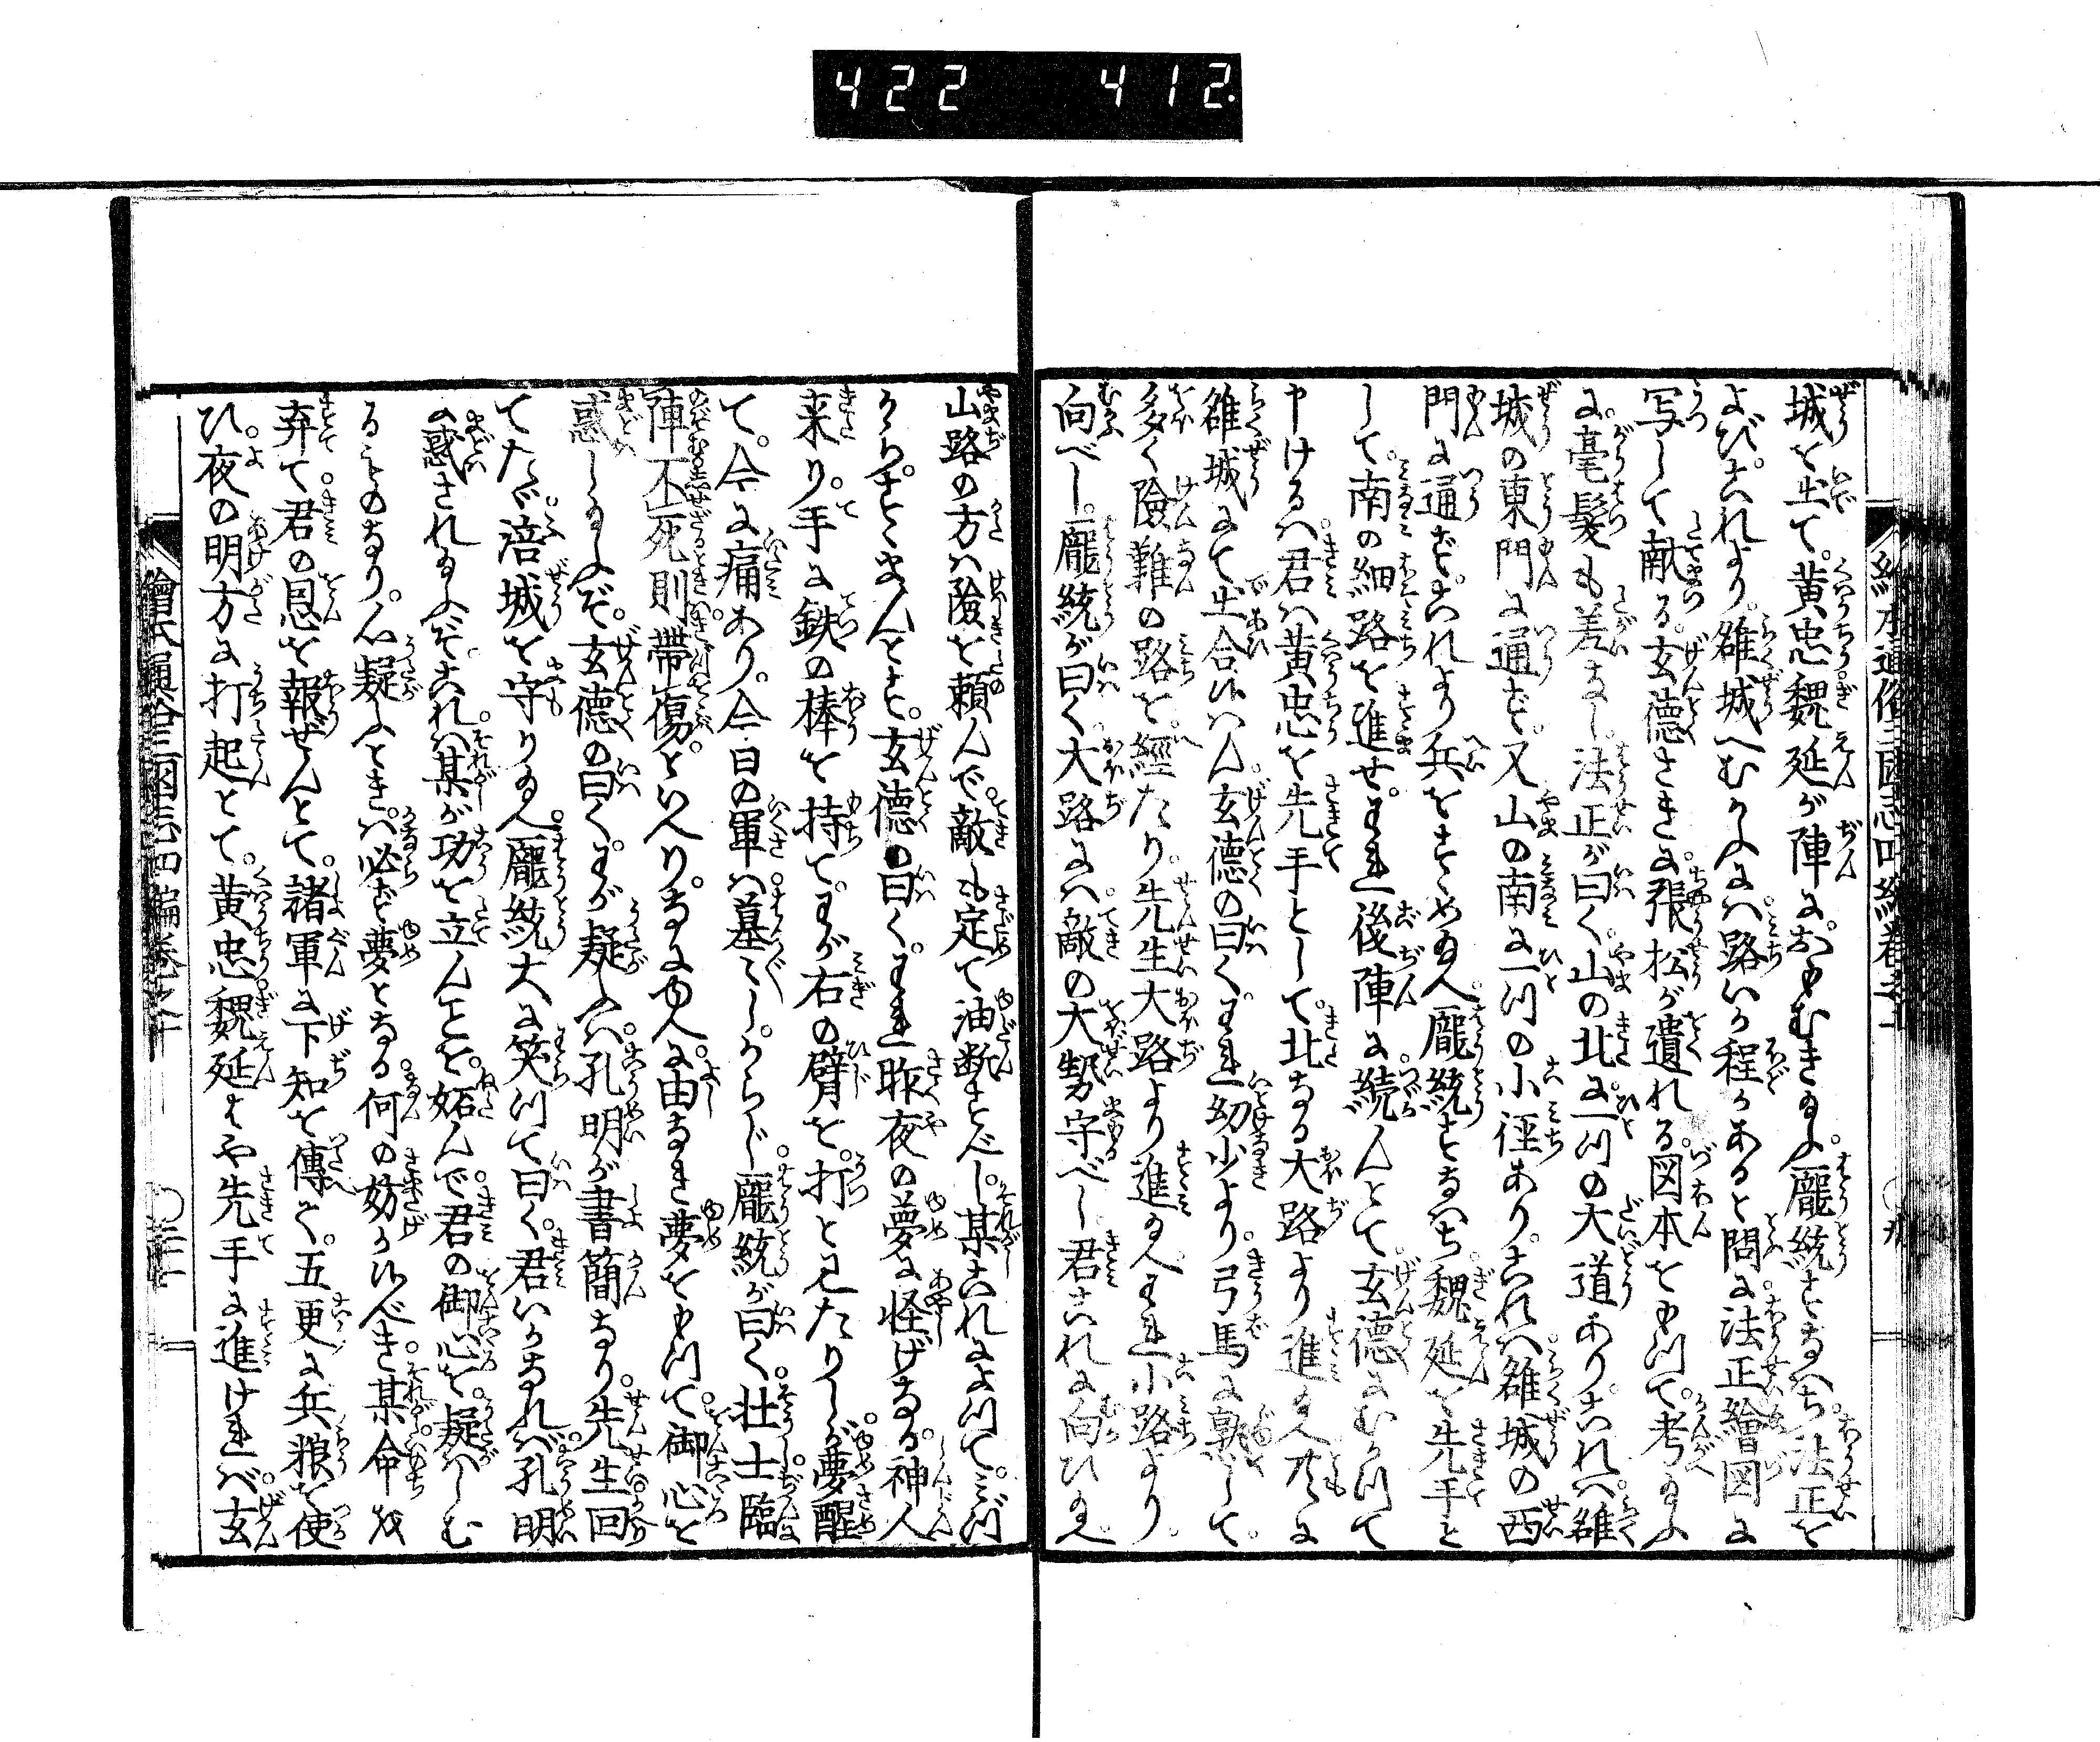 422 412
城を出て。黄忠魏延が陣におもむき給ふ。龐統すなはち。法正を
よび。これより。雒城へむかふには。路いか程かあると問に。法正繪図に
写して献る。玄徳さきに。張松が遺れる。図本をもつて。考給ふ
に。毫髪も差なし。法正が曰く。山の北に一つの大道あり。これハ雒
城の東門に通ず。又山の南に一つの小徑あり。これハ雒城の西
門に通ず。これより兵をすゝめ給へ。龐統すなはち。魏延を先手と
して。南の細路を進せ。われ後陣に続んとて。玄徳にむかつて
申けるハ。君ハ黄忠を先手として。北なる大路より進給へ。共に
雒城にて出合候ハん。玄徳の曰く。われ幼少より。弓馬に熟して。
多く險難の路を經たり。先生大路より進給へ。われ小路より。
向べし。龐統が曰く。大路にハ。敵の大勢守べし。君これに向ひ給へ。
山路の方ハ險を頼んで。敵も定て油断すべし。某これによつて。みづ
からすゝまんとす。玄徳の曰く。われ昨夜の夢に。怪げなる。神人
来り。手に鉄の棒を持て。わが右の臂を。打と見たりしが。夢醒
て。今に痛あり。今日の軍ハ。墓々しからじ。龐統が曰く。壮士臨
陣不死則帯傷。といへり。なにゆへに。由なき夢をもつて。御心を
惑し給ふぞ。玄徳の曰く。わが疑ふハ。孔明が書簡なり。先生回
てたゞ。涪城を守り給へ。龐統大に笑つて曰く。君いかなれバ。孔明
に惑され給ふぞ。これハ某が功を立んことを。妬んで。君の御心を。疑ハしむ
るものなり。心疑ふときハ。必ず夢となる。何の妨か候べき。某命を
弃て。君の恩を報ぜんとて。諸軍に下知を傳ぐ。五更に兵粮を使
ひ。夜の明方に打起とて。黄忠魏延はや先手に進ければ。玄